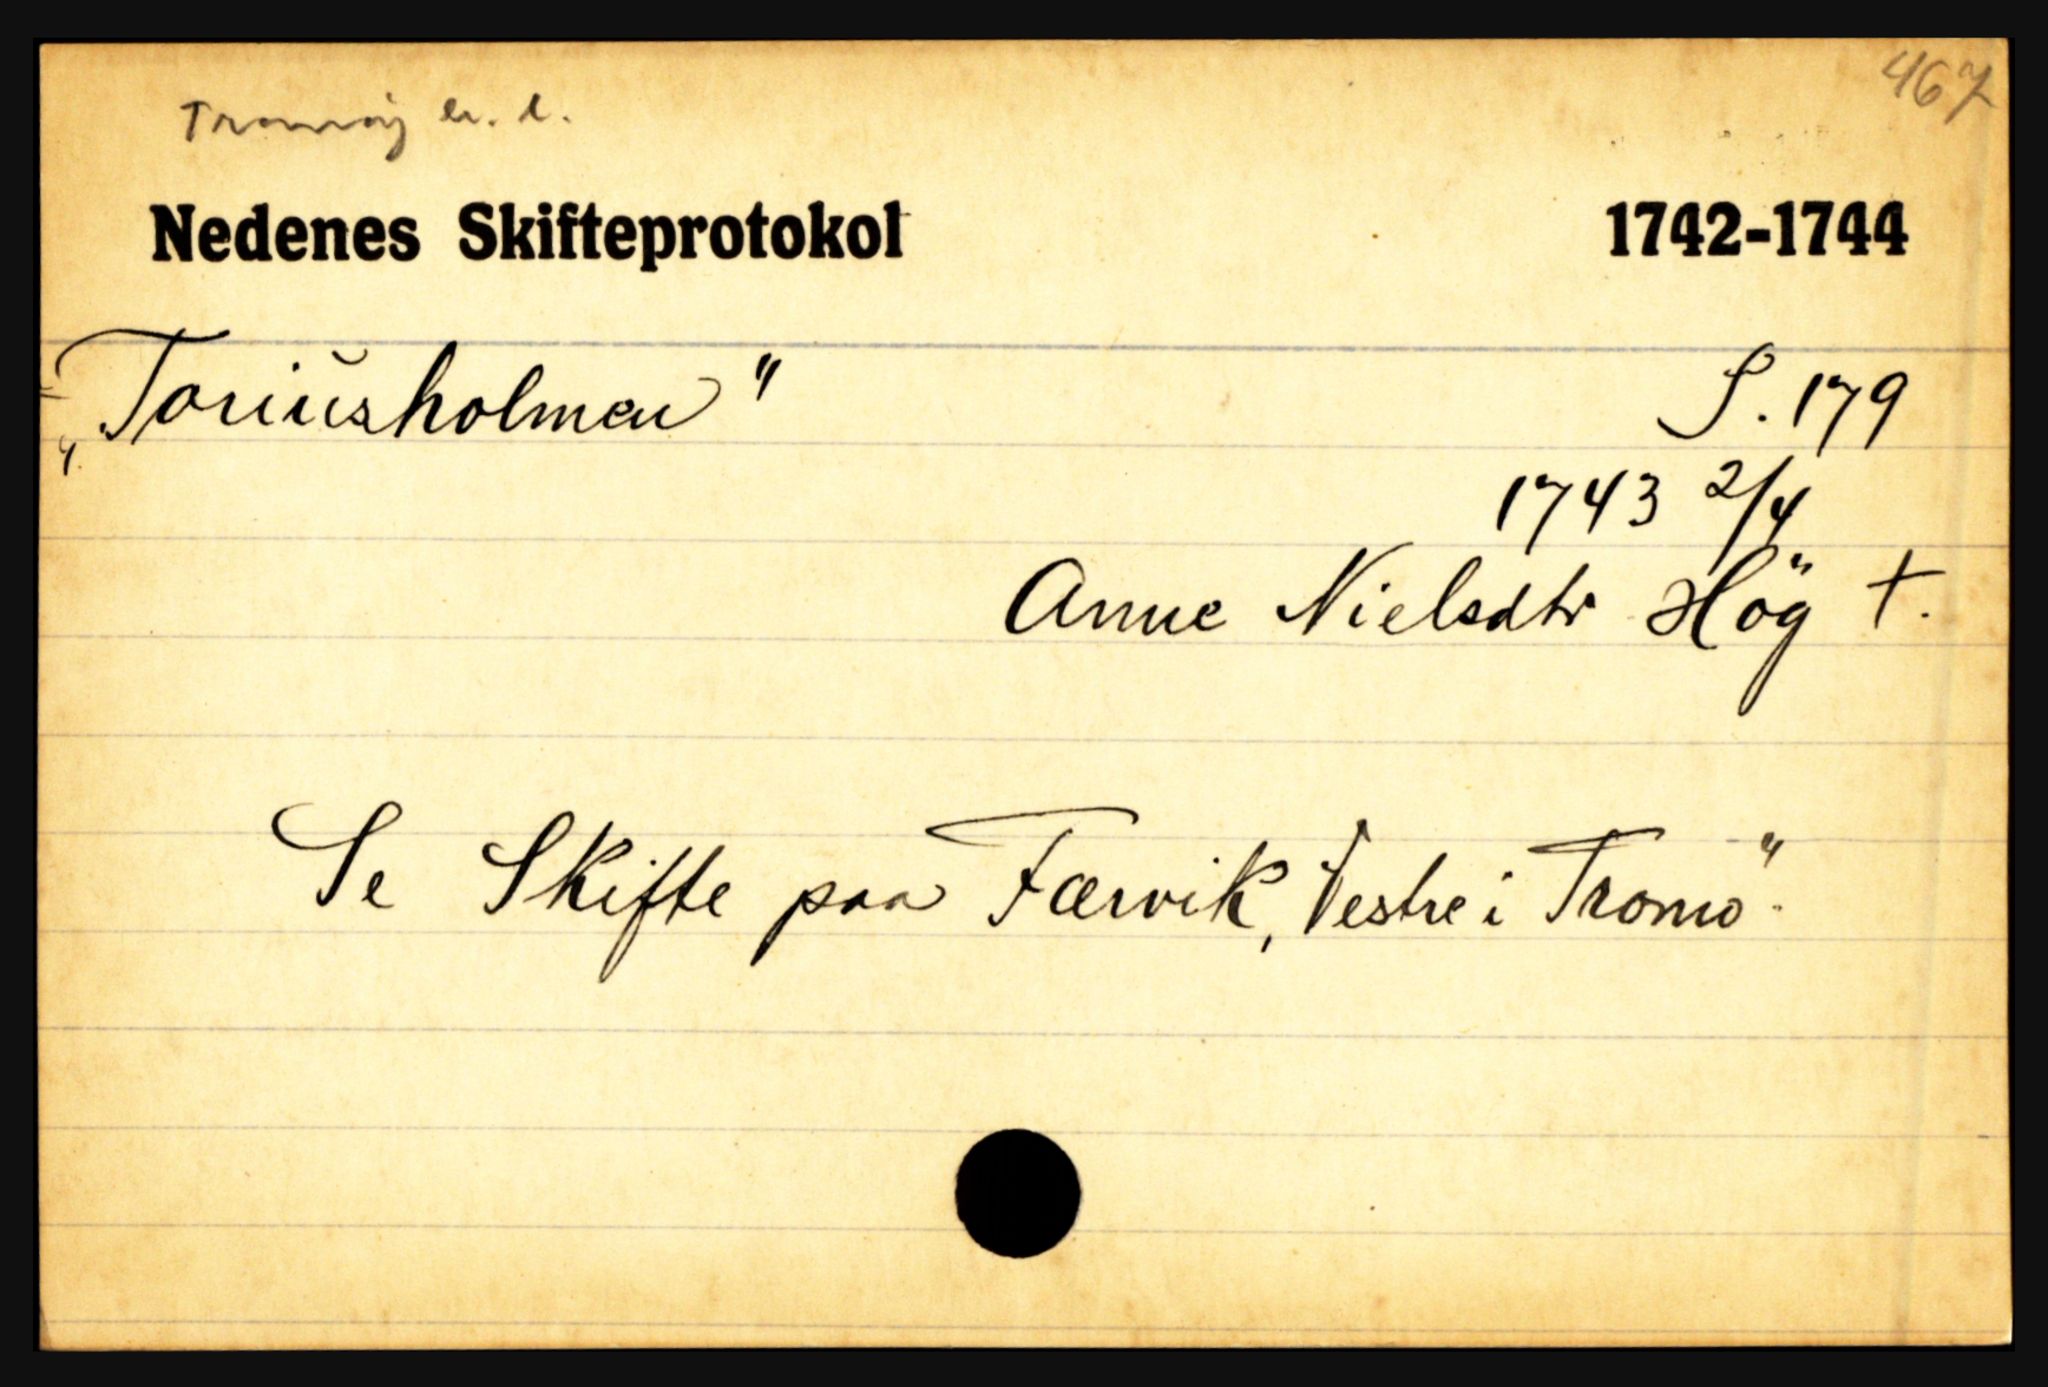 467
Tromøy
Nedenes Skifteprotokol 1742-1744
„Toriusholmen" S. 179
1743 2/4
Anne Nielsdtr Hög †.
Se Skifte paa Færvik, Vestre i Tromö.